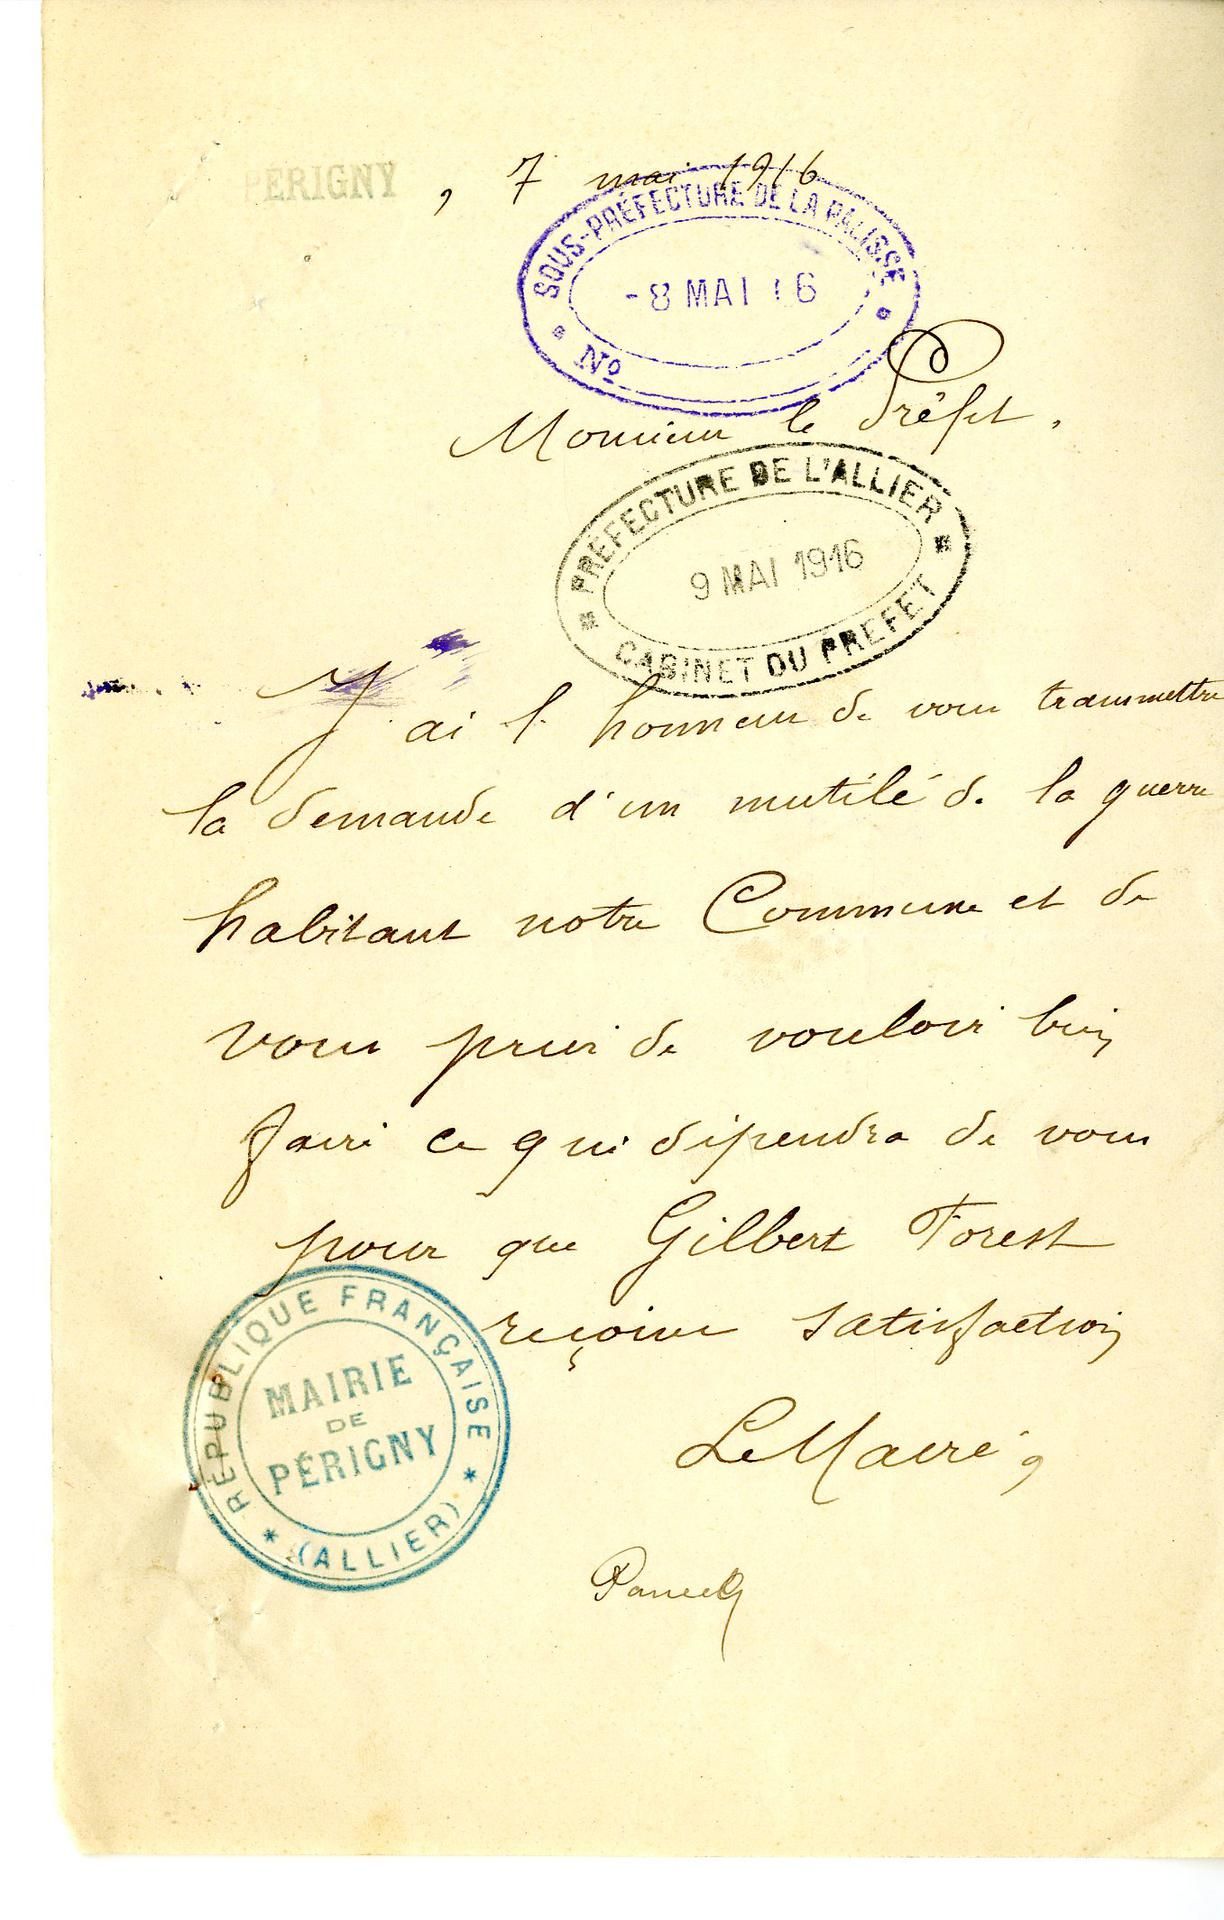 PÉRIGNY, 7 mai 1916
SOUS-PRÉFECTURE DE LA PALISSE
-8 MAI 16
No
Monsieur le Préfet,
PRÉFECTURE DE L'ALLIER
9 MAI 1916
CABINET DU PREFET
J'ai l'honneur de vous transmettre
la demande d'un mutilé de la guerre
habitant notre Commune et de
vous prier de vouloir bien
faire ce qui dépendra de vous
pour que Gilbert Forest
reçoive satisfaction
RÉPUBLIQUE FRANÇAISE
MAIRIE
DE
PÉRIGNY
(ALLIER)
Le Maire,